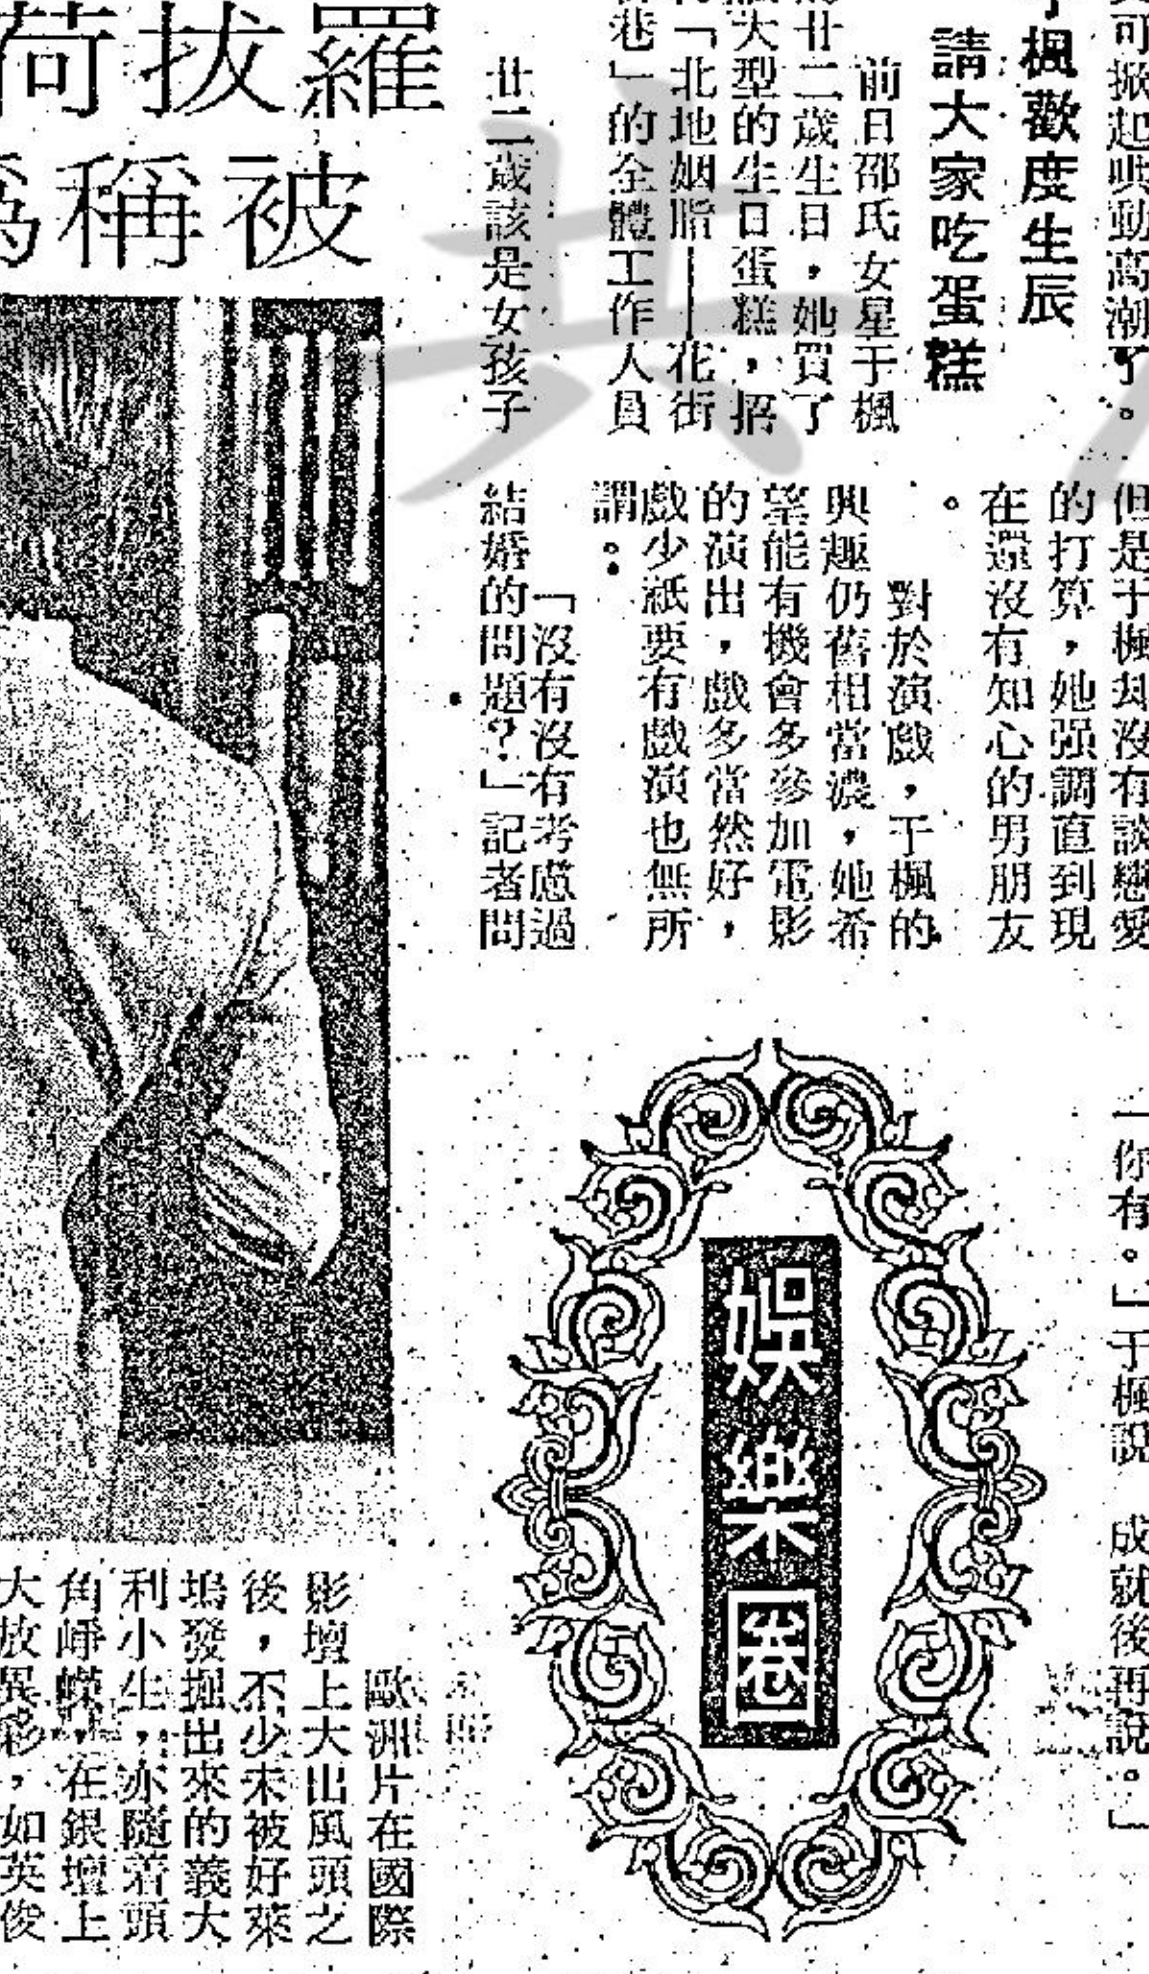 可掀起哄動高潮了。
楓歡度生辰
請大家吃蛋糕
前日邵氏女星于楓
廿二歲生日，她買了
大型的生日蛋糕，招
「北地胭脂——花街
巷」的全體工作人員
廿二歲該是女孩子
但是于楓却沒有談戀愛
的打算，她强調直到現
在還沒有知心的男朋友
。
對於演戲，于楓的
興趣仍舊相當濃，她希
望能有機會多參加電影
的演出，戲多當然好，
戲少祗要有戲演也無所
謂。
「沒有沒有考慮過
結婚的問題？」記者問
你有。」于楓說
成就後再說。」
娛樂圈
羅拔
被稱爲
歐洲片在國際
影壇上大出風頭之
後，不少未被好萊
塢發掘出來的義大
利小生，亦隨着頭
角崢嶸，在銀壇上
大放異彩，如英俊